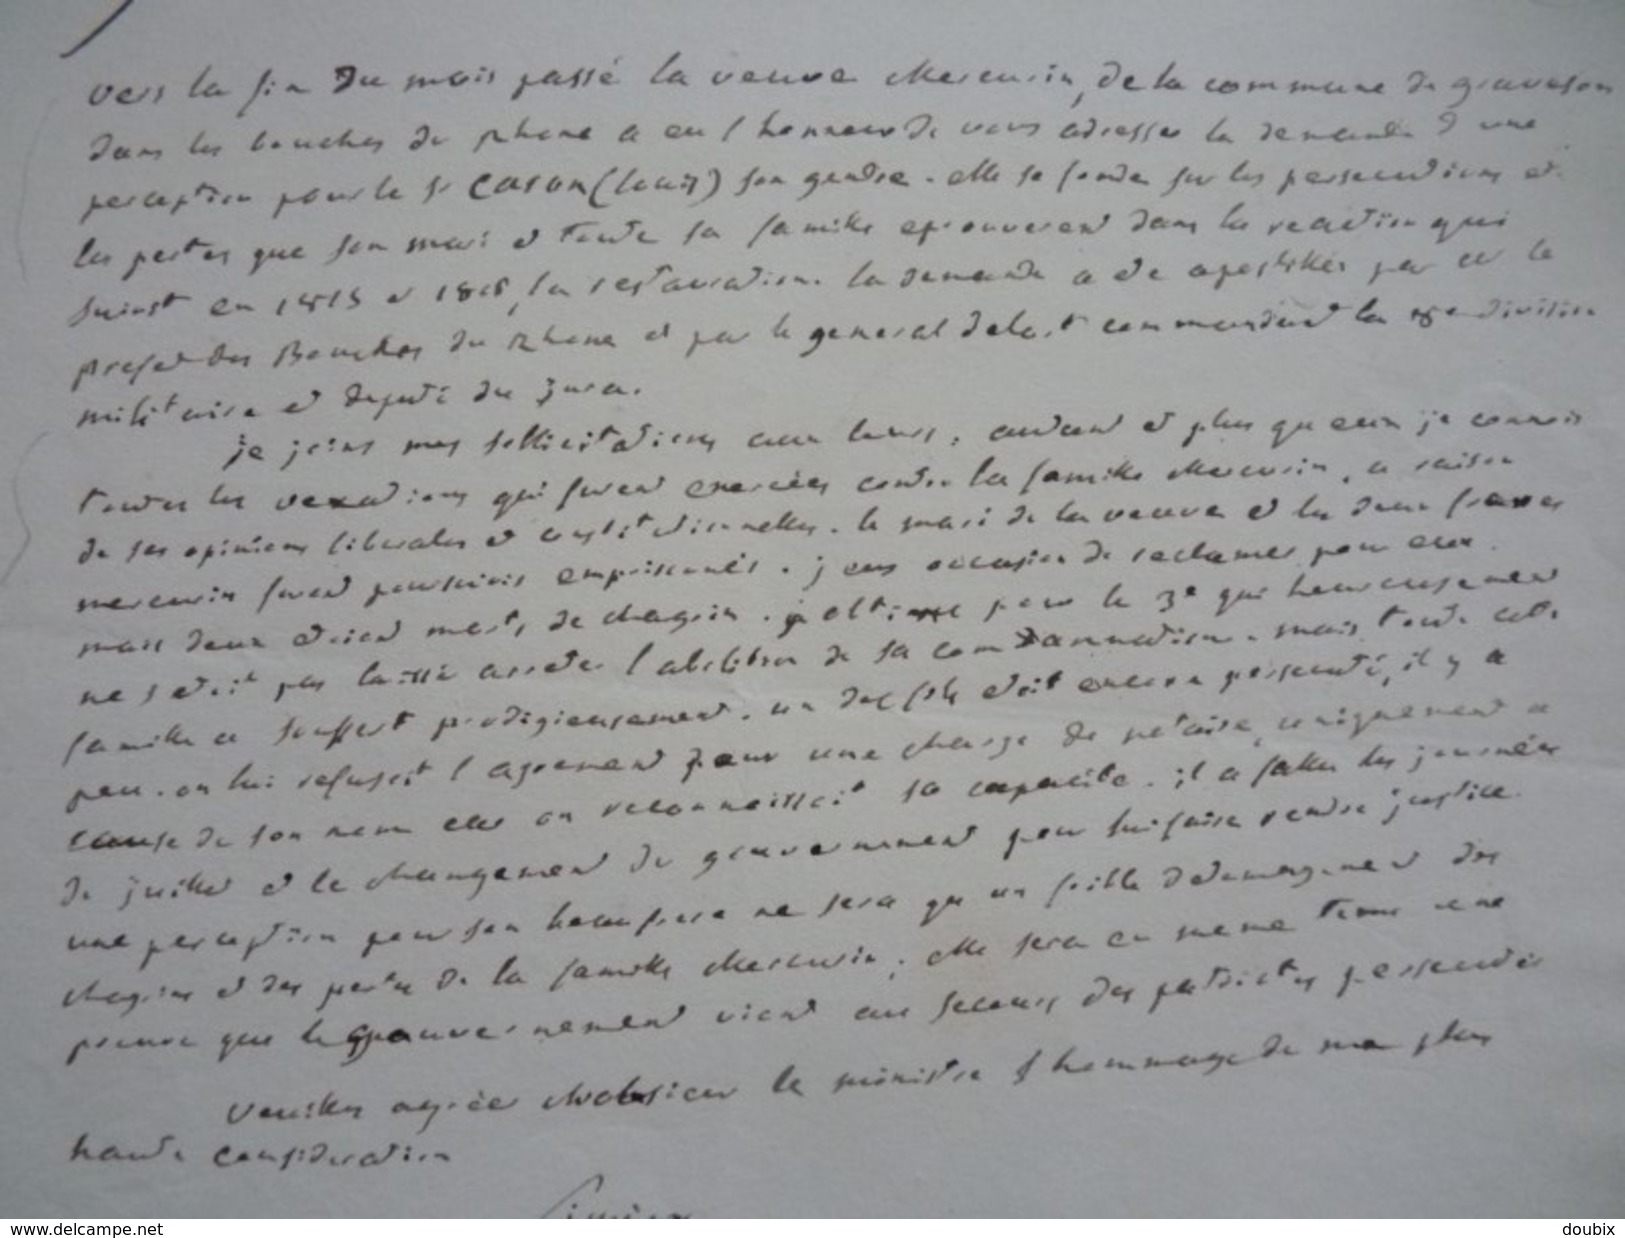 vers la fin du mois passé la veuve Mercurin, de la commune de graveson
dans les bouches du rhone a eu l honneur de vous adresser la demande d une
perception pour le sr CASON (louis) son gendre. elle se fonde sur les persecutions et
les pertes que son mari et toute sa famille eprouverent dans la reaction qui
suivit en 1815 et 1816, la restauration. la demande a ete apostillée par mr le
prefet des Bouches du Rhone et par le general delort commandant la 8e division
militaire et deputé du jura.
je joins mes sollicitations aux leurs, autant et plus qu eux je connois
toutes les vexations qui furent exercées contre la famille Mercurin, a raison
de ses opinions liberales et constitutionnelles. le mari de la veuve et les deux freres
mercurin furent poursuivis emprisonnés. j eus occasion de reclamer pour eux.
mais deux etoient morts de chagrin. j obtins pour le 3e qui heureusement
ne s etoit pas laissé arreter l abolition de sa condamnation. mais toute cette
famille a souffert prodigieusement. un des fils etoit encore persecuté, il y a
peu. on lui refusoit l agrement pour une charge de notaire, uniquement a
cause de son nom car on reconnoissoit sa capacité. il a fallu les journées
de juillet et le changement de gouvernement pour lui faire rendre justice.
une perception pour son beaufrere ne sera qu un foible dedomagement des
chagrins et des pertes de la famille Mercurin. elle sera en meme tems une
preuve que le gouvernement vient au secours des patriotes persecutés
Veuillez agréer Monsieur le ministre l hommage de ma plus
haute consideration
www.delcampe.net
doubix